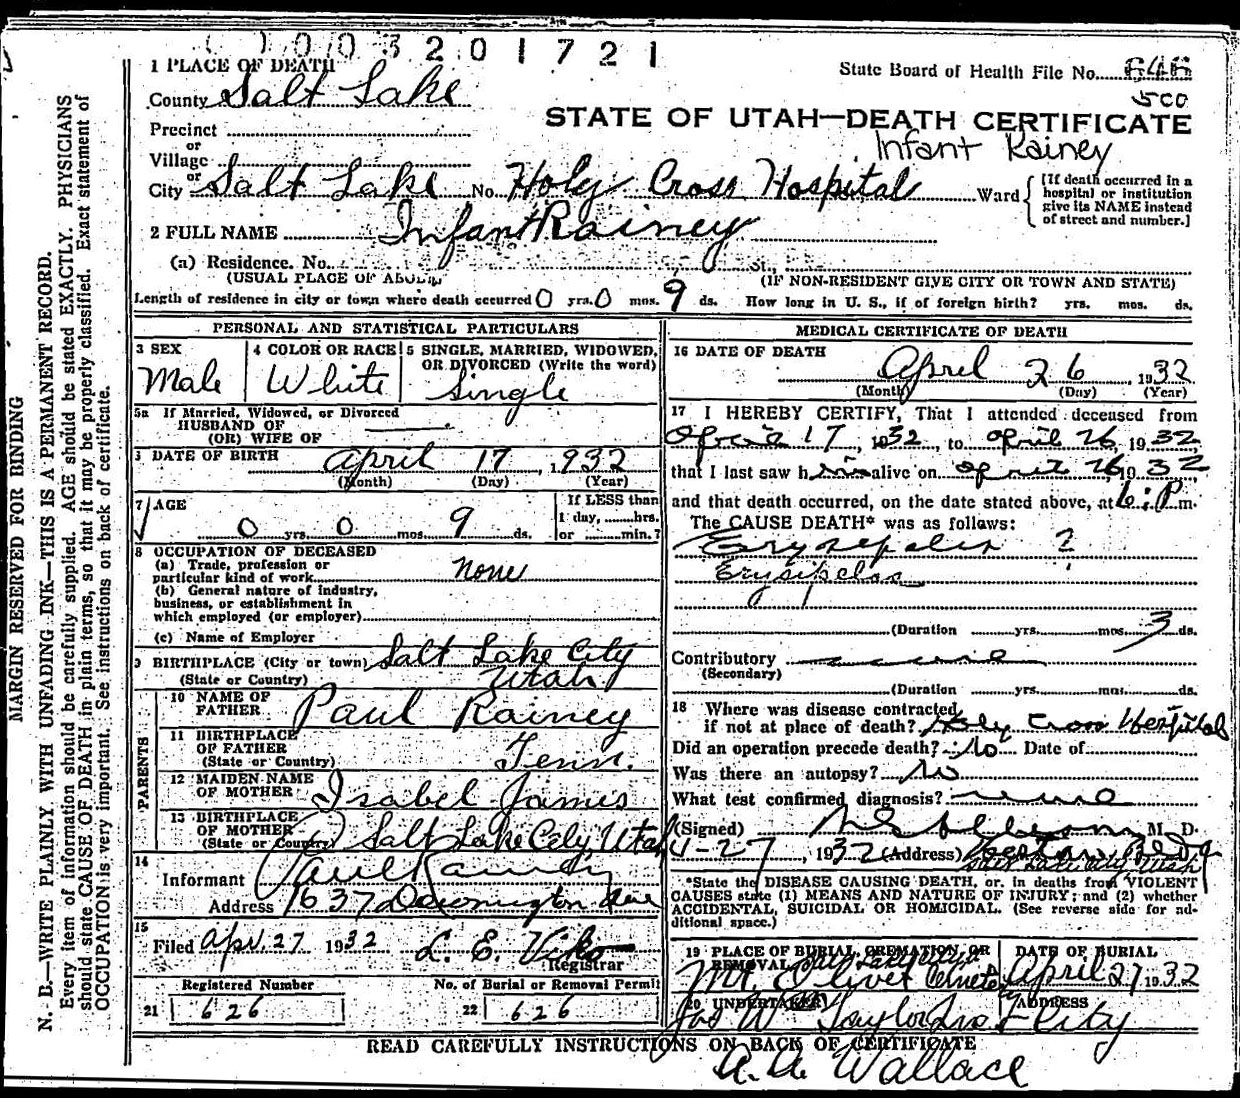 003201721
1 PLACE OF DEATH
State Board of Health File No. 646
500
County Salt Lake
STATE OF UTAH—DEATH CERTIFICATE
Infant Rainey
Precinct
or
Village
or
City Salt Lake No. Holy Cross Hospital Ward
[If death occurred in a hospital or institution give its NAME instead of street and number.]
2 FULL NAME Infant Rainey
(a) Residence. No. St.,
(USUAL PLACE OF ABODE) (IF NON-RESIDENT GIVE CITY OR TOWN AND STATE)
Length of residence in city or town where death occurred 0 yrs. 0 mos. 9 ds. How long in U. S., if of foreign birth? yrs. mos. ds.
PERSONAL AND STATISTICAL PARTICULARS
3 SEX
Male
4 COLOR OR RACE
White
5 SINGLE, MARRIED, WIDOWED, OR DIVORCED (Write the word)
Single
5a If Married, Widowed, or Divorced
HUSBAND OF
(OR) WIFE OF
DATE OF BIRTH April 17, 1932
(Month) (Day) (Year)
7 AGE
0 yrs. 0 mos. 9 ds.
If LESS than
1 day, hrs.
or min.?
8 OCCUPATION OF DECEASED
(a) Trade, profession or
particular kind of work None
(b) General nature of industry,
business, or establishment in
which employed (or employer)
(c) Name of Employer
9 BIRTHPLACE (City or town) Salt Lake City
(State or Country) Utah
PARENTS
10 NAME OF
FATHER Paul Rainey
11 BIRTHPLACE
OF FATHER
(State or Country) Tenn.
12 MAIDEN NAME
OF MOTHER Isabel James
13 BIRTHPLACE
OF MOTHER
(State or Country) Salt Lake City, Utah
14
Informant Paul Rainey
Address 1637 Downington Ave
15
Filed Apr. 27 1932 L. E. Viko
Registrar
Registered Number
21 626
No. of Burial or Removal Permit
22 626
MEDICAL CERTIFICATE OF DEATH
16 DATE OF DEATH
April 26, 1932
(Month) (Day) (Year)
17 I HEREBY CERTIFY, That I attended deceased from
April 17, 1932, to April 26, 1932
that I last saw him alive on April 26, 1932
and that death occurred, on the date stated above, at 6:P m.
The CAUSE DEATH* was as follaws:
Erysepelis ?
Erysipelas
(Duration yrs. mos. 3 ds.
Contributory none
(Secondary)
(Duration yrs. mos. ds.
18 Where was disease contracted
if not at place of death? Holy Cross Hospital
Did an operation precede death? No Date of
Was there an autopsy? No
What test confirmed diagnosis? none
(Signed) M. D.
4-27, 1932 (Address) Bldg
Salt Lake City Utah
*State the DISEASE CAUSING DEATH, or, in deaths from VIOLENT
CAUSES state (1) MEANS AND NATURE OF INJURY; and (2) whether
ACCIDENTAL, SUICIDAL OR HOMICIDAL. (See reverse side for additional space.)
19 PLACE OF BURIAL, CREMATION, OR
REMOVAL
Mt. Olivet Cemetery
DATE OF BURIAL
April 27 1932
20 UNDERTAKER
Jos W Taylor
ADDRESS
City
READ CAREFULLY INSTRUCTIONS ON BACK OF CERTIFICATE
A. A. Wallace
MARGIN RESERVED FOR BINDING
N. B.—WRITE PLAINLY WITH UNFADING INK—THIS IS A PERMANENT RECORD.
Every item of information should be carefully supplied. AGE should be stated EXACTLY. PHYSICIANS
should state CAUSE OF DEATH in plain terms, so that it may be properly classified. Exact statement of
OCCUPATION is very important. See instructions on back of certificate.